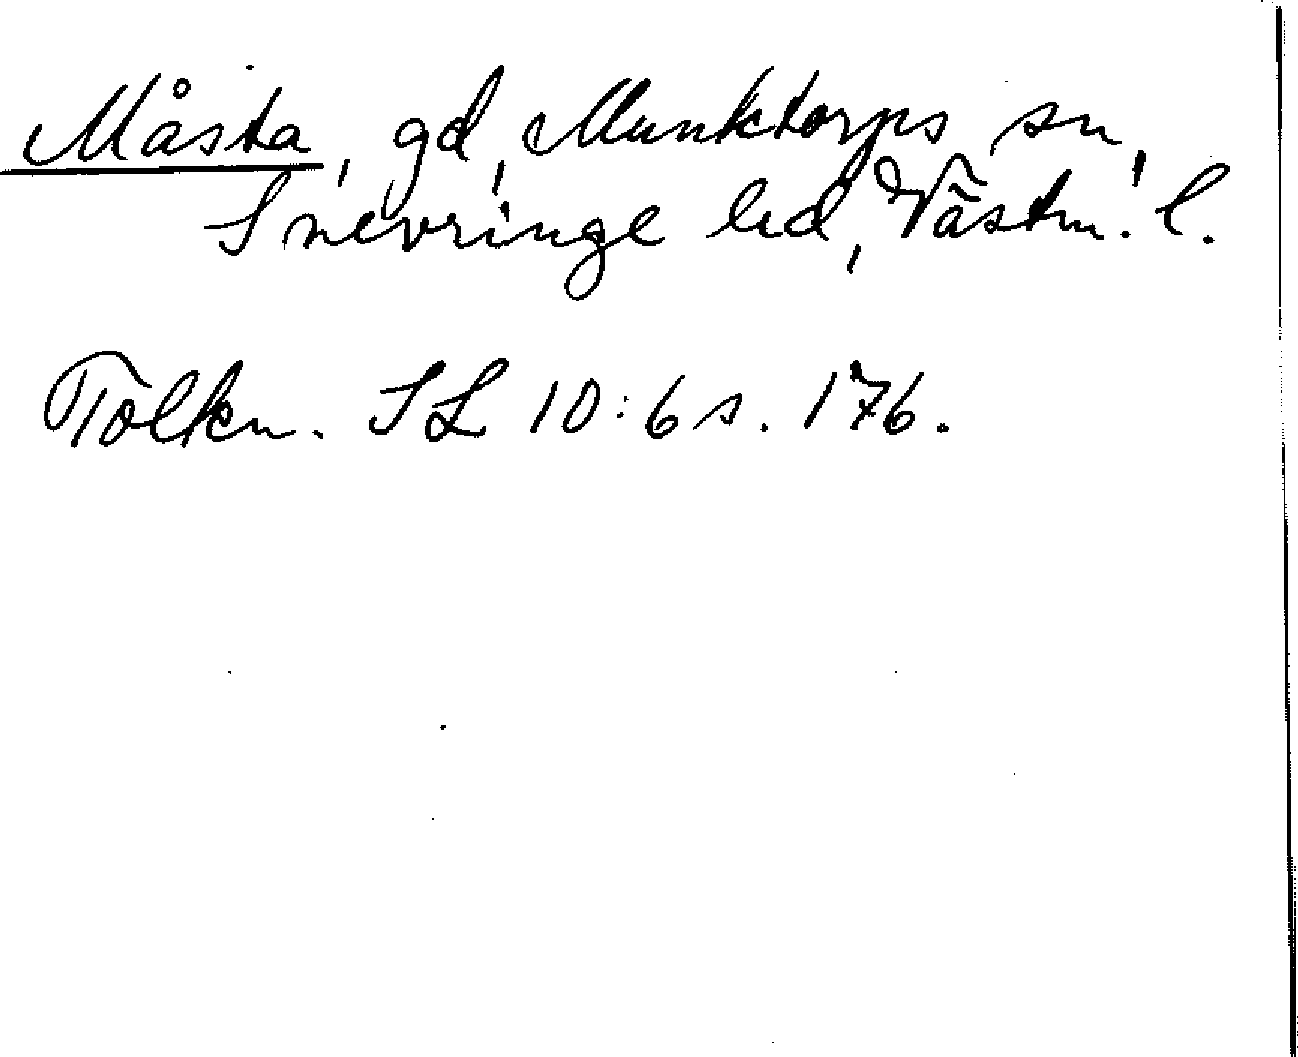 Måsta, gd, Munktorps sn,
Snevringe hd, Västm. l.
Tolkn. SL 10:6 s. 176.